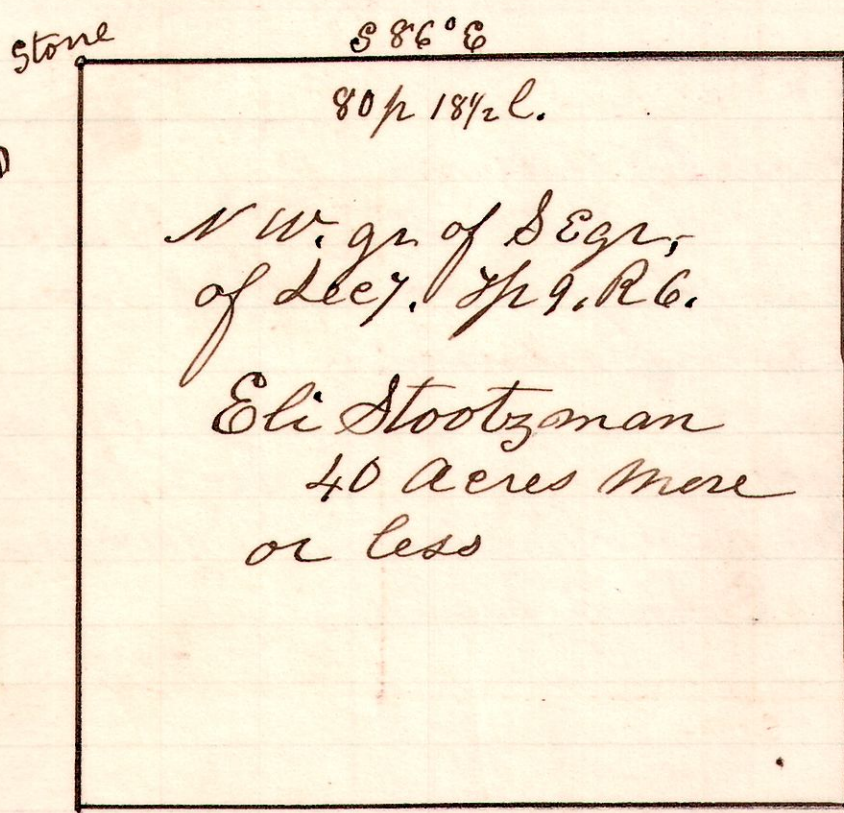 Stone
S 86° E
80 p 18½ l.
N W. qr. of S E qr,
of Sec 7. Tp 9. R 6.
Eli Stootzman
40 Acres More
or less